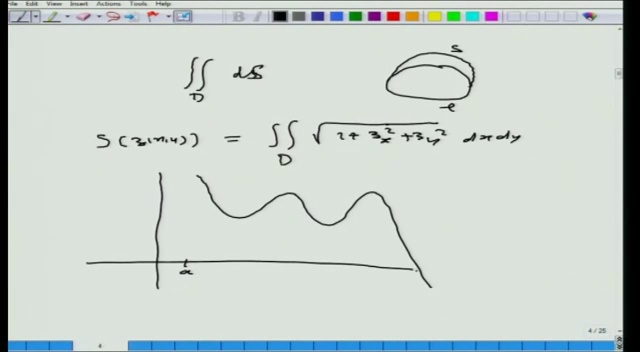 File Edit View Insert Actions Tools Help
∬_D dS
S
S(z(x,y)) = ∬_D √(1+z_x²+z_y²) dxdy
a
4 / 25
4